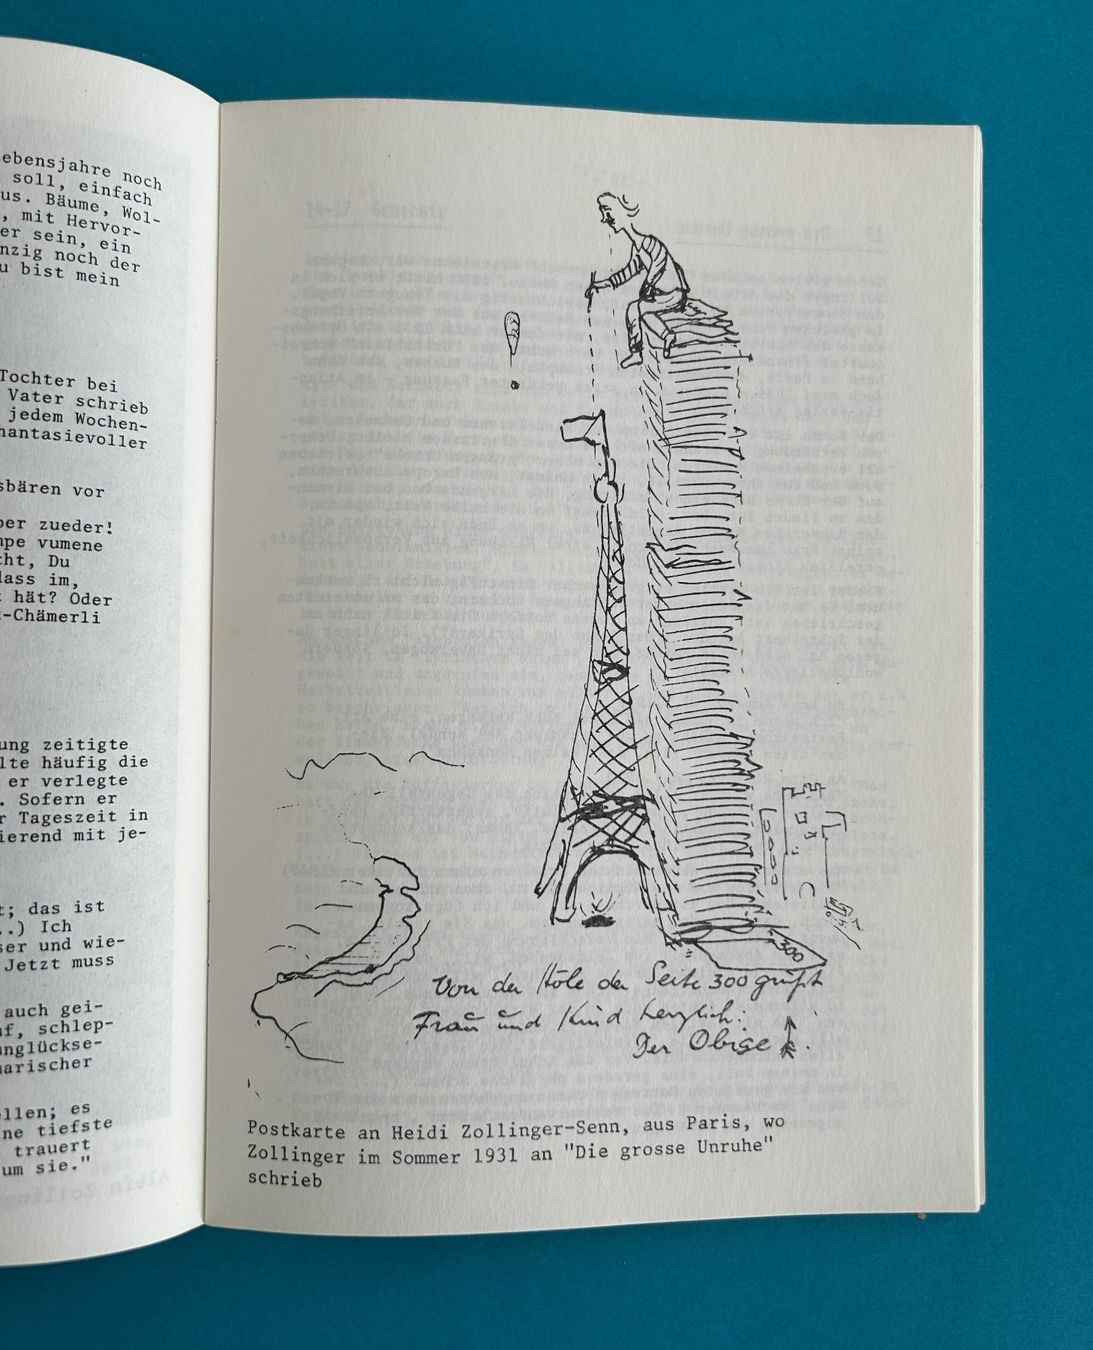 ebensjahre noch
soll, einfach
us. Bäume, Wol-
, mit Hervor-
er sein, ein
nzig noch der
u bist mein
Tochter bei
Vater schrieb
jedem Wochen-
hantasievoller
sbären vor
ber zueder!
mpe vumene
cht, Du
dass im,
t hät? Oder
t-Chämerli
ung zeitigte
lte häufig die
er verlegte
. Sofern er
r Tageszeit in
ierend mit je-
t; das ist
..) Ich
ser und wie-
Jetzt muss
auch gei-
uf, schlep-
unglückse-
narischer
llen; es
ne tiefste
trauert
um sie."
300
Von der Höhe der Seite 300 grüßt
Frau und Kind herzlich:
Der Obige
Postkarte an Heidi Zollinger-Senn, aus Paris, wo
Zollinger im Sommer 1931 an "Die grosse Unruhe"
schrieb